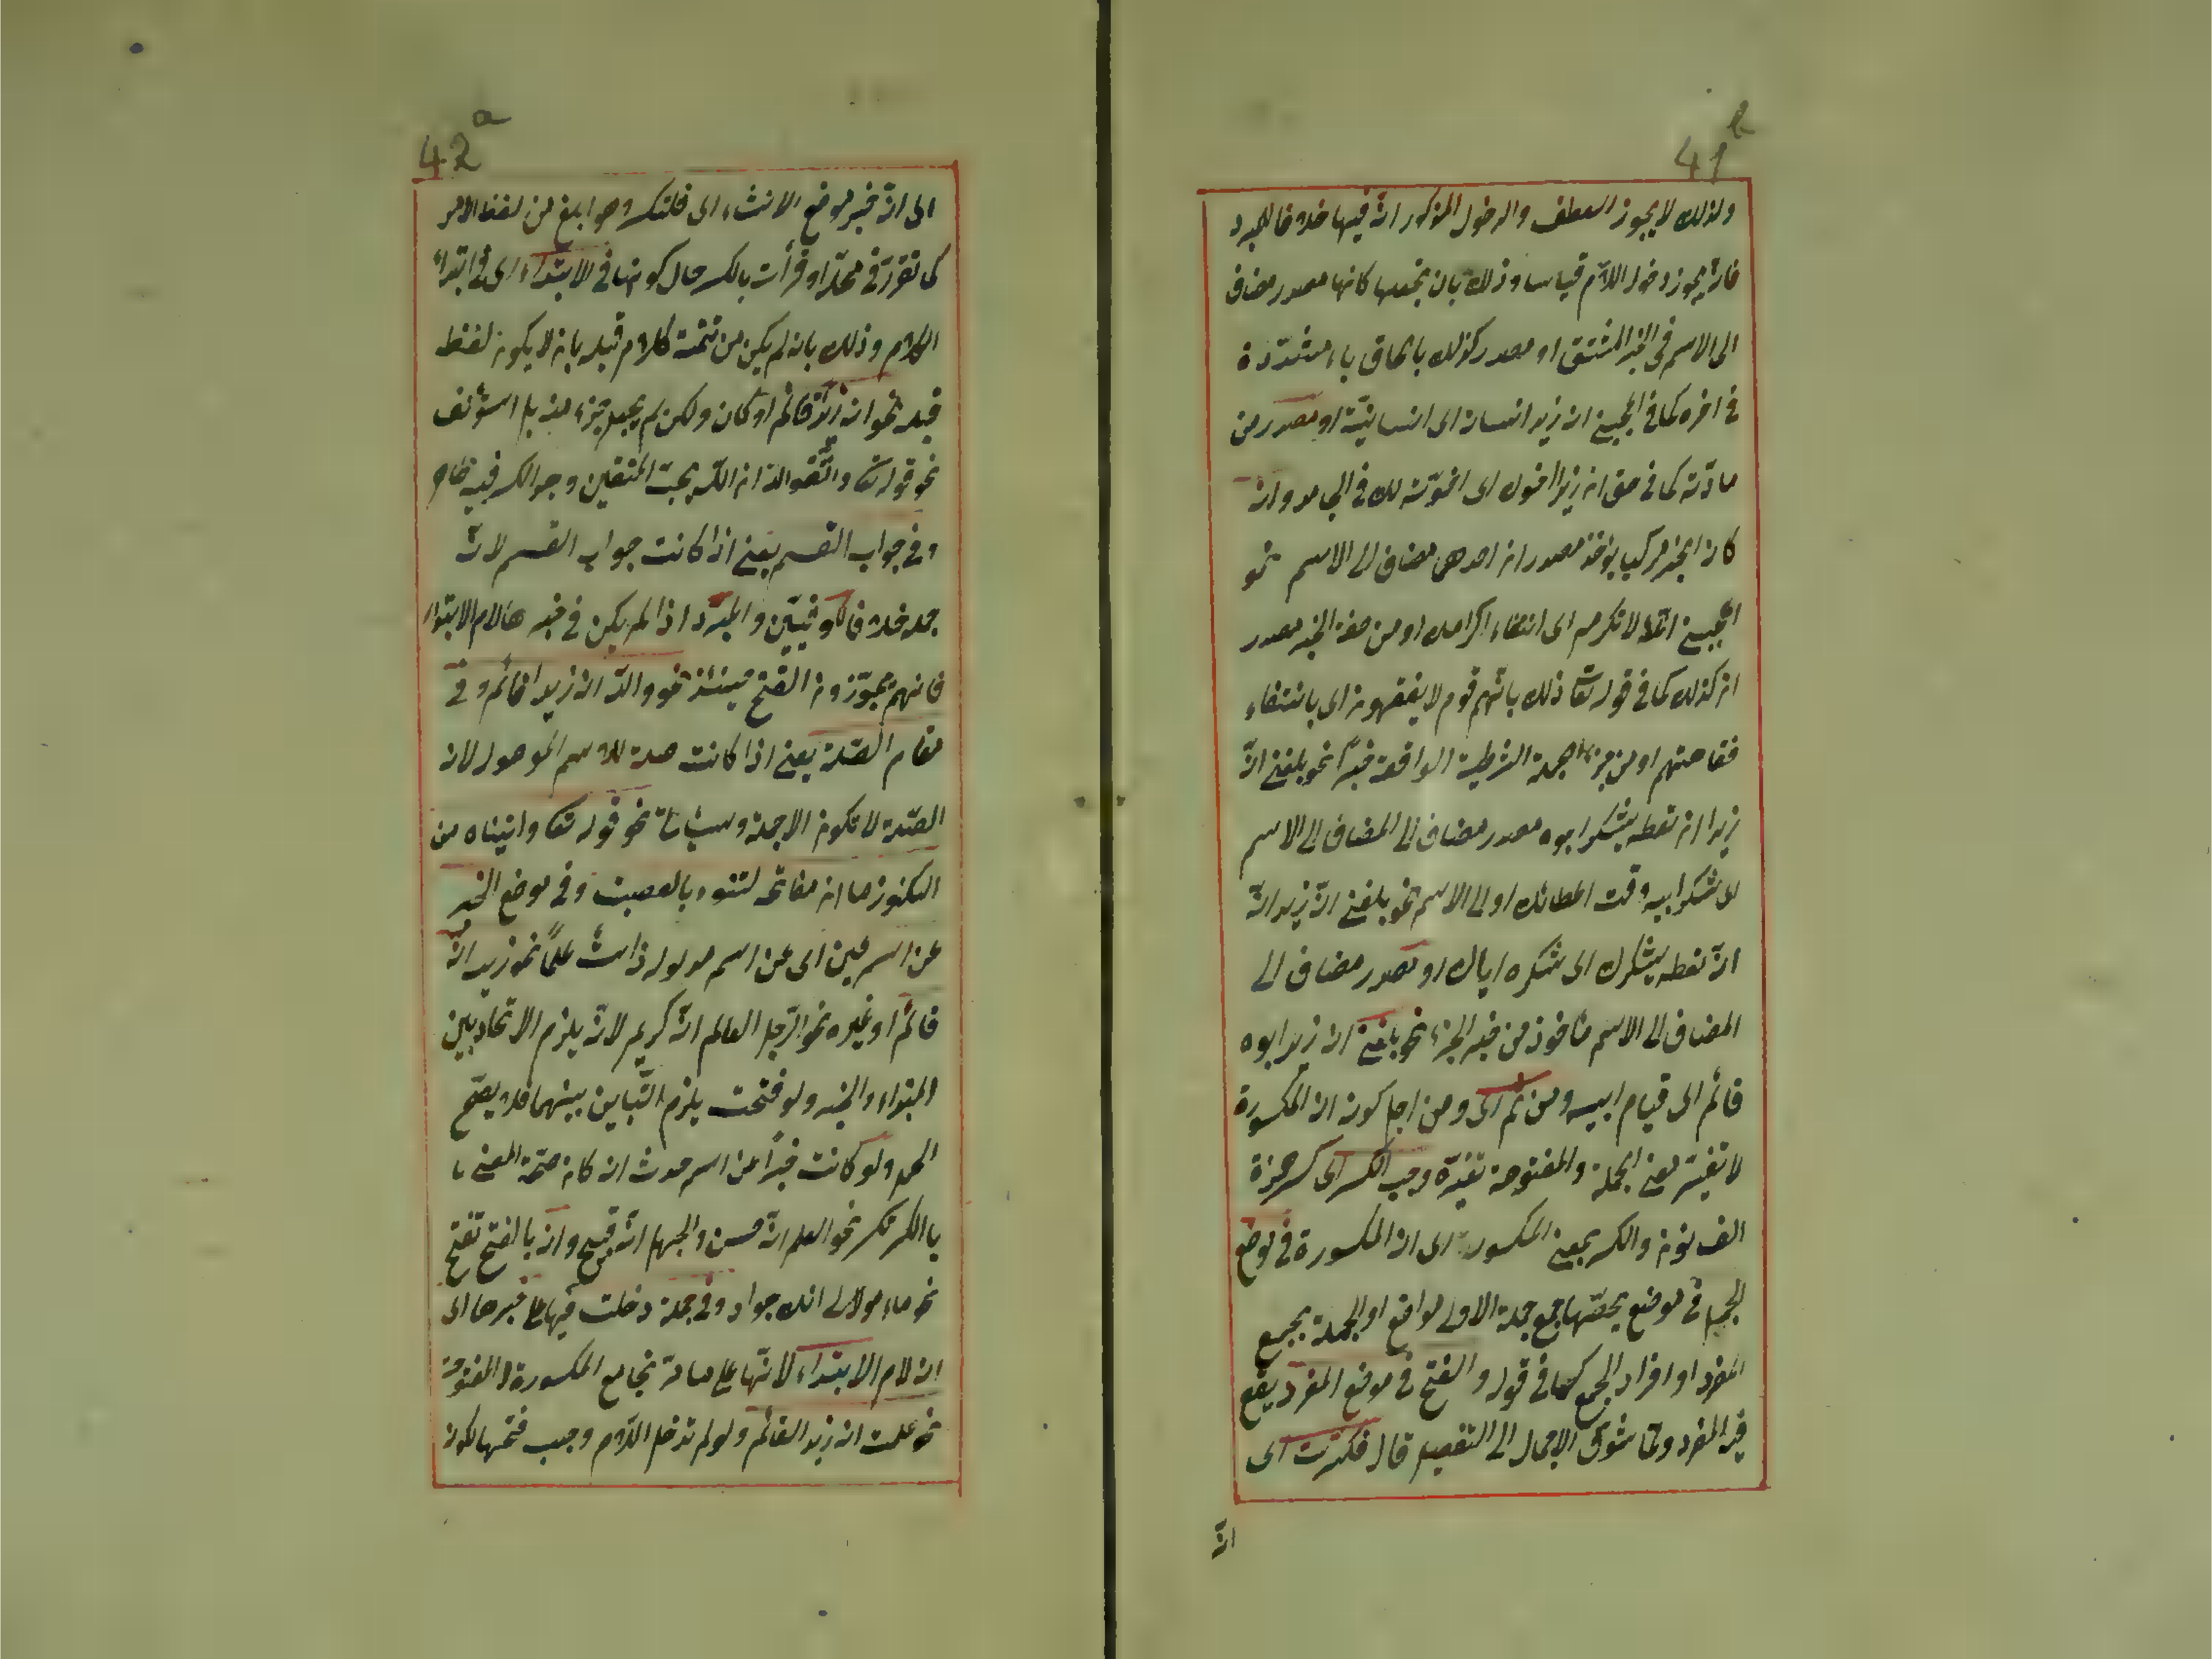 41b
ولذلك لا يجوز العطف والدخول المذكور انّ فيها خلافا للمبرد
فانه يجوز دخول اللام قياسا وذلك بان تجعلها كانها مصدر مضاف
الى الاسم في الخبر المشتق او مصدر كذلك بالحاق ياء مشددة
في اخره كما في اعجبني ان زيد انسان اى انسانيته او مصدر من
مادته كما في حق ان زيدا اخوك اى اخوته لك في الجامد وان
كان الخبر مركب يؤخذ مصدر ان احدهما مضاف الى الاسم نحو
اعجبني انك لا تكرمه اى انتفاء اكرامك او من صفة الخبر مصدر
ان كذلك كما في قوله تعا ذلك بانهم قوم لا يفقهون اى بانتفاء
فقاهتهم او من جزاء الجملة الشرطية الواقعة خبرا نحو بلغني انّ
زيدا ان تعطه يشكر ابوه مصدر مضاف الى المضاف الى الاسم
اى شكر ابيه وقت اعطائك او الى الاسم نحو بلغني انّ زيد انّ
ان تعطه يشكرك اى شكره اياك او مصدر مضاف الى
المضاف الى الاسم مأخوذ من خبر الجزء نحو بلغني ان زيد ابوه
قائم اى قيام ابيه ومن ثم اى ومن اجل كون ان المكسورة
لا تغير معنى الجملة والمفتوحة تغيره وجب الكسر اى كسر همزة
الف نون والكسر بمعنى المكسورة اى ان المكسورة في موضع
الجمل في موضع يخصها جمع جملة الاولى مواقع او الجملة بجمع
المفرد او افراد الجمع كما في قوله والفتح في موضع المفرد يقع
فيه المفرد ولما شوق الاجمال الى التفصيل قال فكسرت اى
انّ
42a
اى انّ خبر موضع الانشاء اى فلتكسر وهو ابلغ من لفظ الامر
كما تقرر في محله او قرأت بالكسر حال كونها في الابتداء اى في ابتداء
الكلام وذلك بان لم يكن من تتمة كلام قبله بان لا يكون لفظ
قبله نحو ان زيدا قائم او كان ولكن لم يجعل جزء منه بل استؤنف
نحو قوله تعا واتقوا الله ان الله يحب المتقين وجوب الكسر فيه ظاهر
وفي جواب القسم يعني اذا كانت جواب القسم لانه
جملة خلافا للكوفيين والمبرّد اذا لم يكن في خبرها لام الابتداء
فانهم يجوّزون الفتح حينئذ نحو والله ان زيدا قائم وفي
مقام الصلة يعني اذا كانت صلة للاسم الموصول لان
الصلة لا تكون الا جملة وسيأتي نحو قوله تعا واتيناه من
الكنوز ما ان مفاتحه لتنوء بالعصبة وفي موضع الخبر
عن اسم عين اى عن اسم مدلوله ذات علمًا نحو زيد انّه
قائم او غيره نحو الرّجل العالم انّه كريم لانّه يلزم الاتحاد بين
المبتداء والخبر ولو فتحت يلزم التّباين بينهما فلا يصح
الحمل ولو كانت خبرًا عن اسم حدث ان كان صحّة المعنى با
بالكسر تكسر نحو العلم انّه حسن والجهل انّه قبيح وان بالفتح تفتح
نحو ماء مولالى انك جواد وفي جملة دخلت فيها على خبرها اى
ان لام الابتداء لانها على ما مر تجامع المكسورة لا المفتوحة
نحو علمت ان زيد القائم ولو لم تدخل اللام وجب فتحها لكون